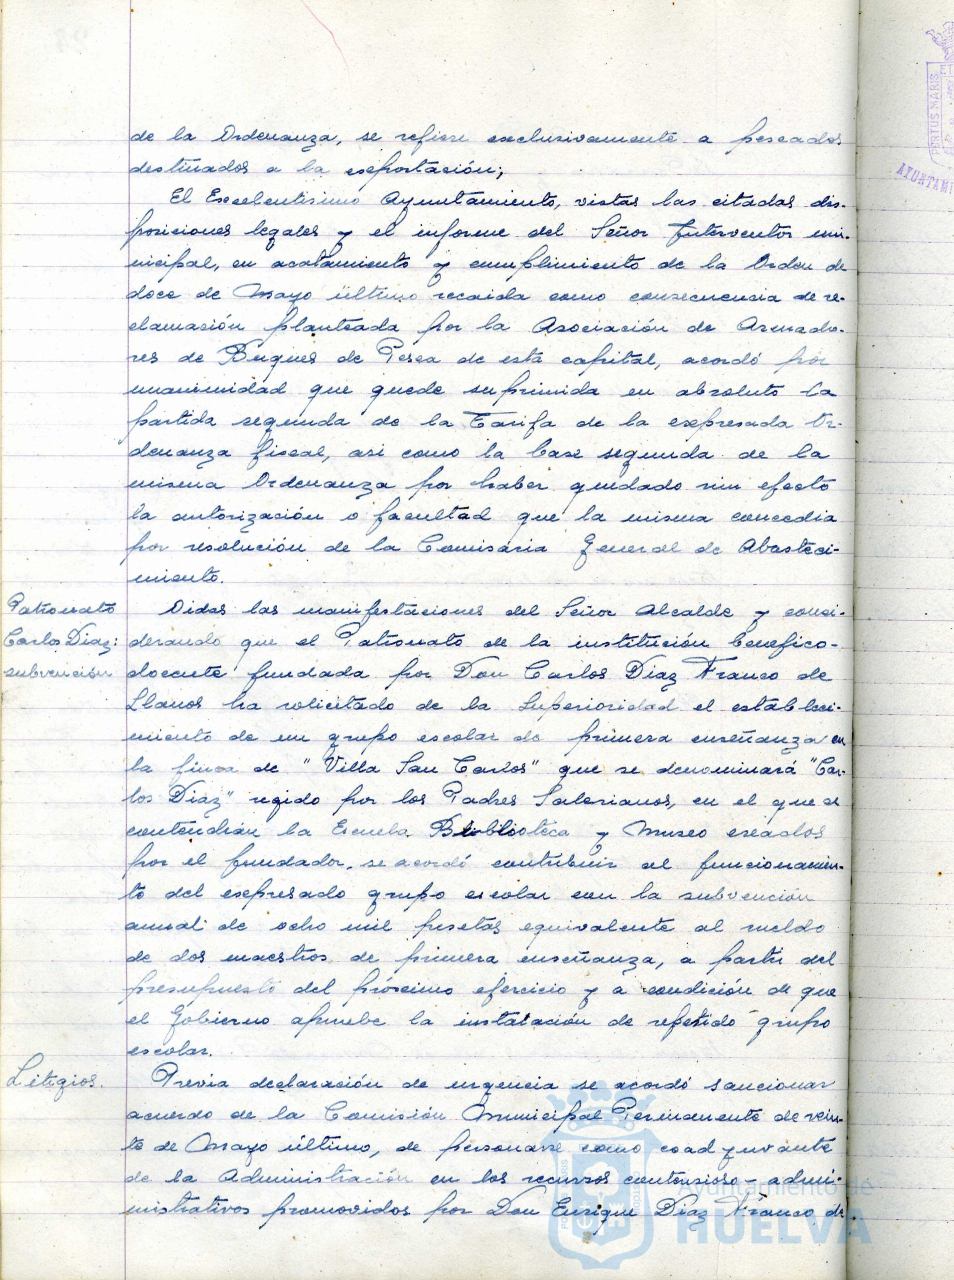 de la Ordenanza, se refiere exclusivamente a pescados
destinados a la exportación;
El Excelentísimo Ayuntamiento, vistas las citadas dis-
posiciones legales y el informe del Señor Interventor mu-
nicipal, en acatamiento y cumplimiento de la Orden de
doce de Mayo último recaida como consecuencia de re-
clamación planteada por la Asociación de Armado-
res de Buques de Pesca de esta capital, acordó por
unanimidad que quede suprimida en absoluto la
partida segunda de la Tarifa de la expresada Or-
denanza fiscal, asi como la base segunda de la
misma Ordenanza por haber quedado sin efecto
la autorización o facultad que la misma concedia
por resolución de la Comisaria General de Abasteci-
miento.
Patronato
Carlos Diaz:
subvención
Oidas las manifestaciones del Señor Alcalde y consi-
derando que el Patronato de la institución benefico-
docente fundada por Don Carlos Diaz Franco de
Llanos ha solicitado de la Superioridad el estableci-
miento de un grupo escolar de primera enseñanza en
la finca de "Villa San Carlos" que se denominará "Car-
los Diaz" regido por los Padres Salesianos, en el que se
contendrán la Escuela Biblioteca y Museo creados
por el fundador, se acordó contribuir al funcionamien-
to del expresado grupo escolar con la subvención
anual de ocho mil pesetas equivalente al sueldo
de dos maestros de primera enseñanza, a partir del
presupuesto del próximo ejercicio y a condición de que
el Gobierno apruebe la instalación de repetido grupo
escolar.
Litigios.
Previa declaración de urgencia se acordó sancionar
acuerdo de la Comisión Municipal Permanente de vein-
te de Mayo último, de personarse como coadyuvante
de la Administración en los recursos contensioso-admi-
nistrativos promovidos por Don Enrique Diaz Franco de
Ayuntamiento de
HUELVA